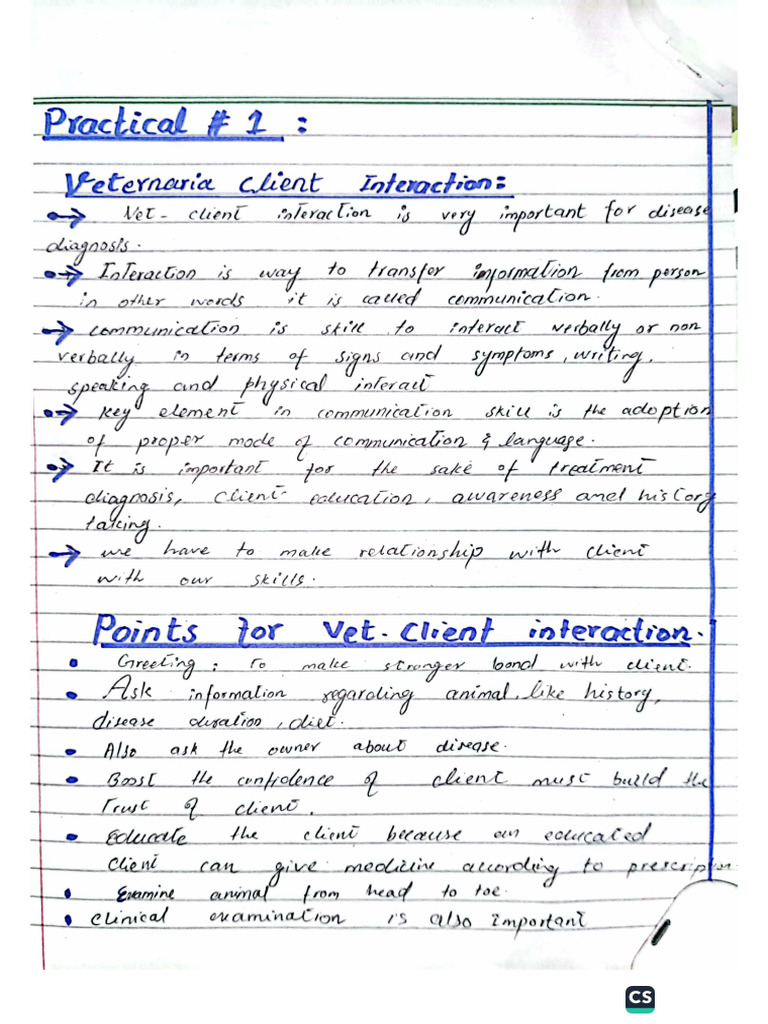 Practical # 1 :
Veternaria Client Interaction:
Vet - client interaction is very important for disease
diagnosis.
Interaction is way to transfer information from person
in other words it is called communication.
communication is skill to interact verbally or non
verbally in terms of signs and symptoms, writing,
speaking and physical interact
key element in communication skill is the adoption
of proper mode of communication & language.
It is important for the sake of treatment
diagnosis, client education, awareness and history
taking.
we have to make relationship with client
with our skills.
Points for Vet. Client interaction.
Greeting; To make stronger bond with client.
Ask information regarding animal, like history,
disease duration, diet.
Also ask the owner about disease.
Boost the confidence of client must build the
Trust of client.
Educate the client because an educated
client can give medicine according to prescription
Examine animal from head to toe.
Clinical examination is also important
CS